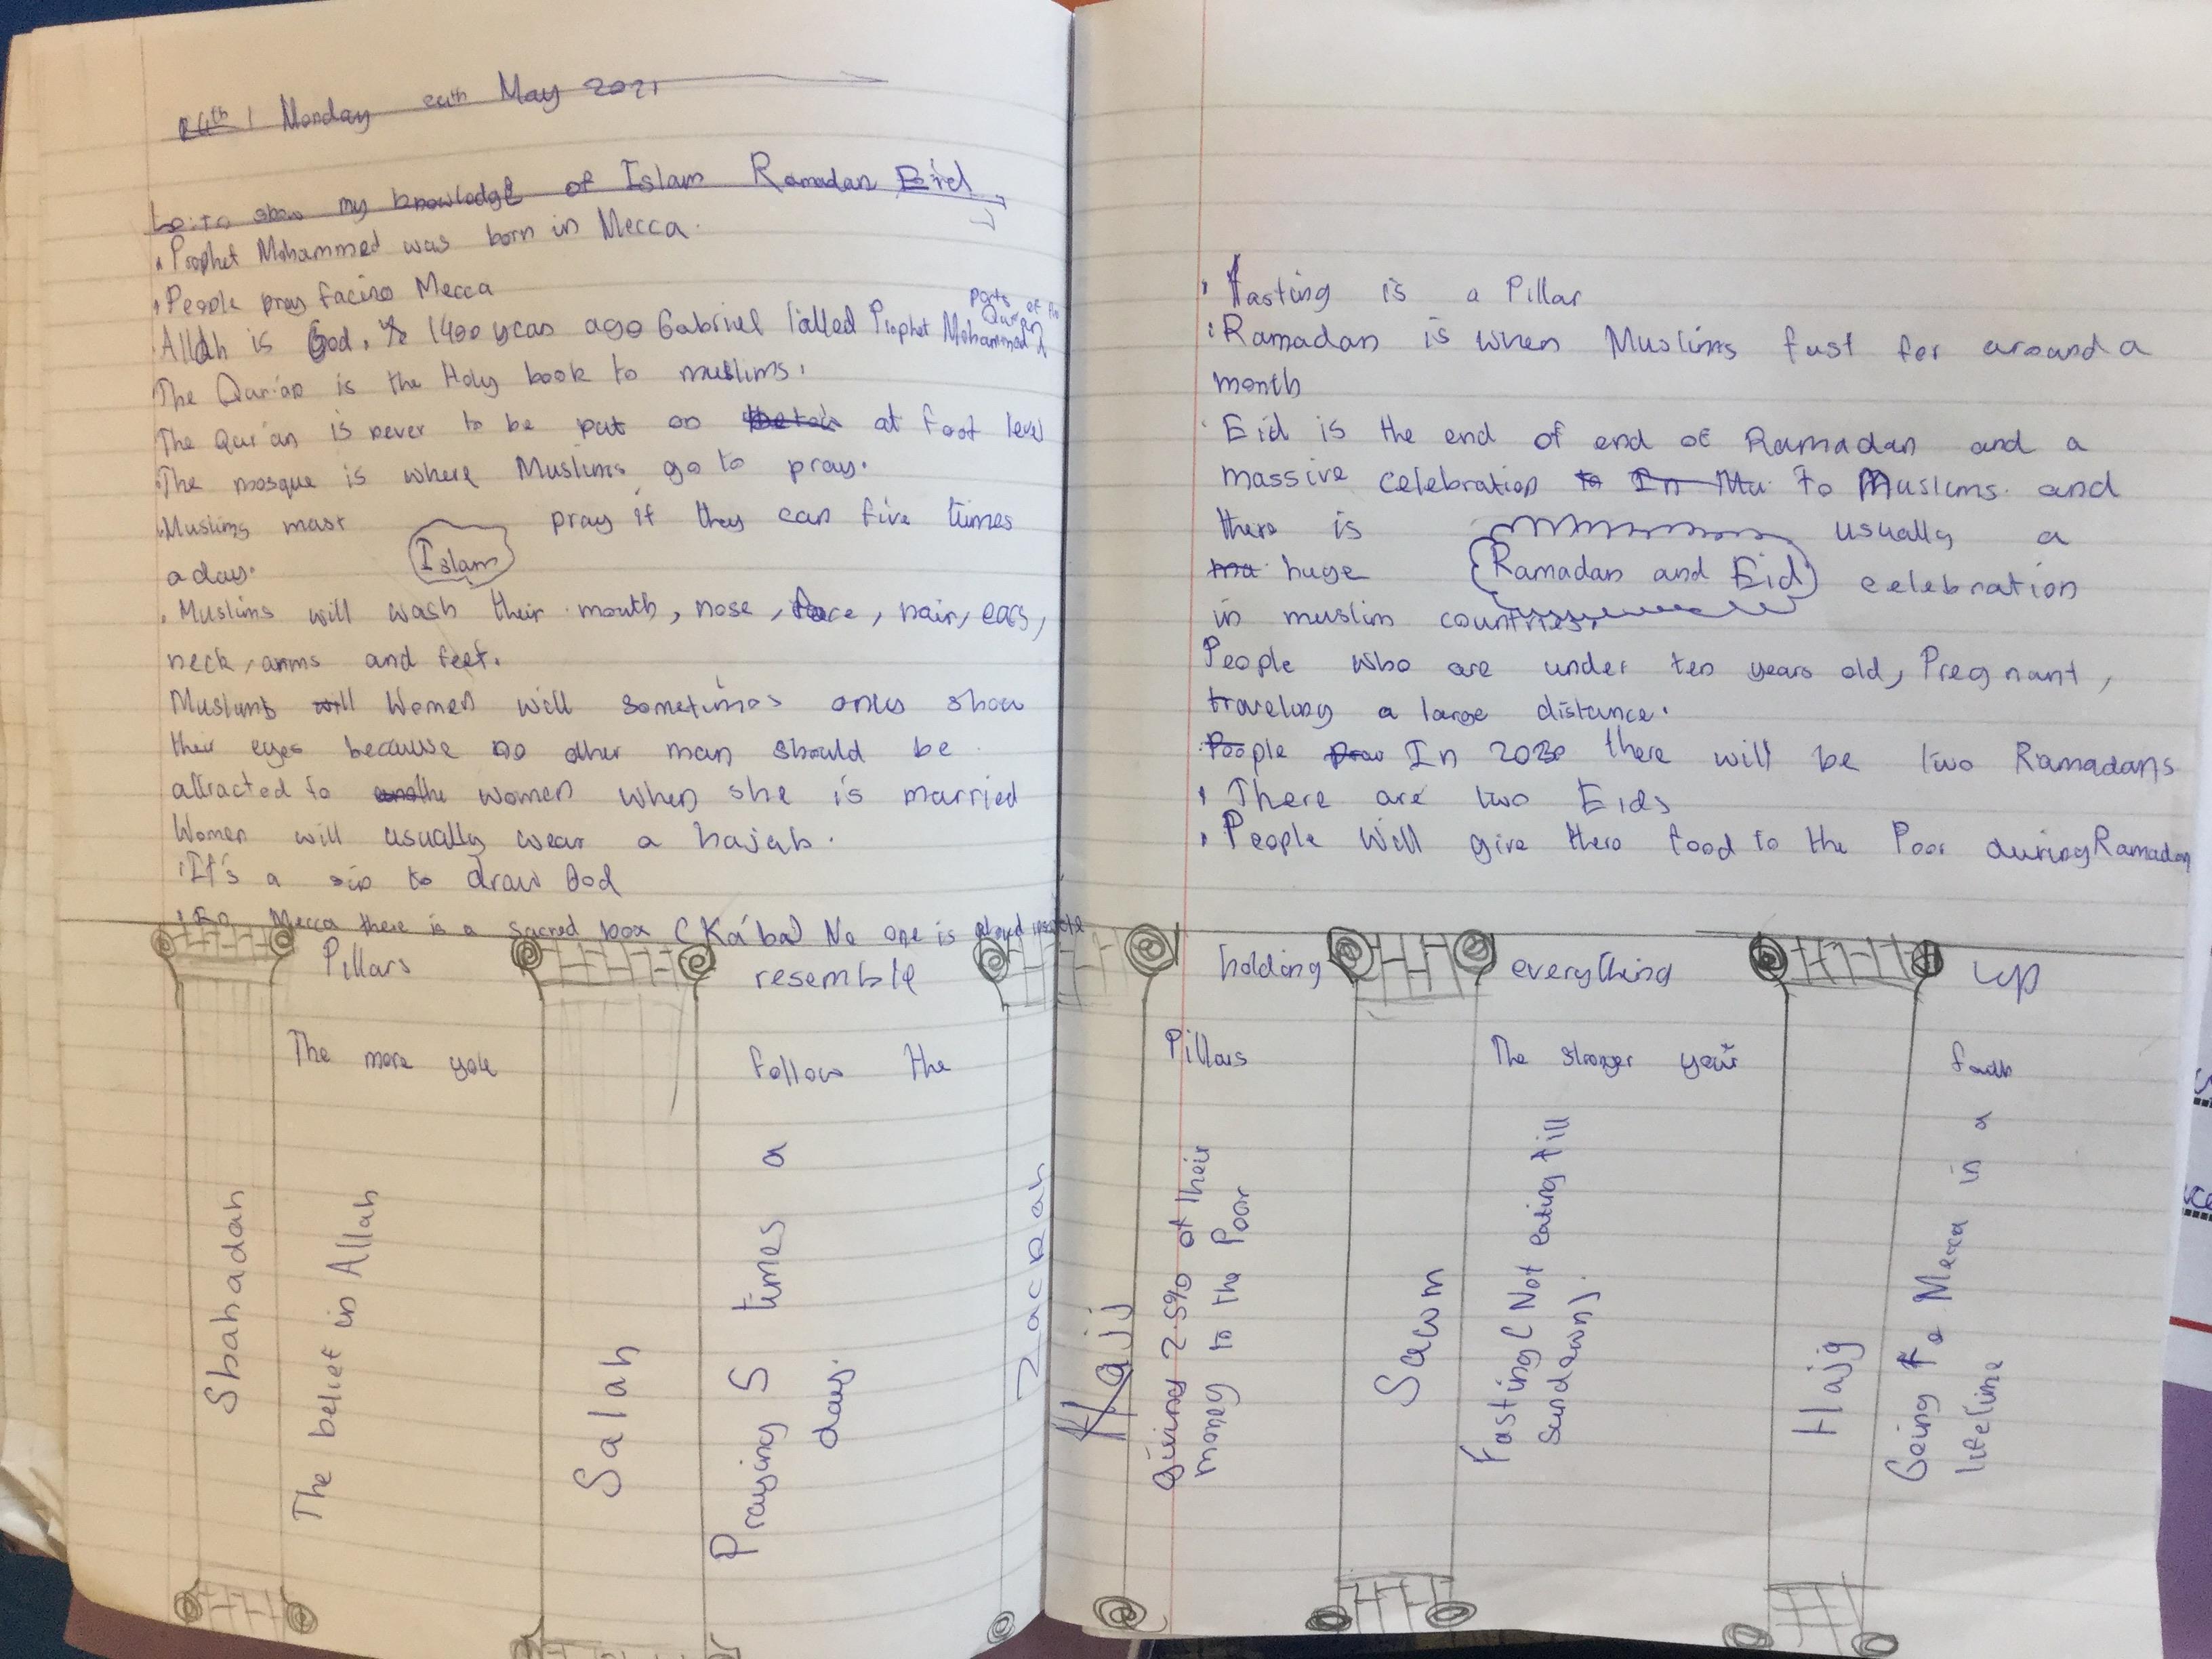 24th Monday 24th May 2021
Lo: To show my knowledge of Islam Ramadan Eid
Prophet Mohammed was born in Mecca.
People pray facing Mecca
Allah is God. 1400 years ago Gabriel called Prophet Mohammed
parts of the
Quran
The Qur'an is the Holy book to muslims.
The Qur'an is never to be put on at foot level
The mosque is where Muslims go to pray.
Muslims must pray if they can five times
a day.
Islam
Muslims will wash their mouth, nose, face, hair, ears,
neck, arms and feet.
Muslims will Women will sometimes only show
their eyes because no other man should be
attracted to women when she is married
Women will usually wear a hajab.
It's a sin to draw God
In Mecca there is a sacred box (Ka'ba) No one is aloud inside
Fasting is a Pillar
Ramadan is when Muslims fast for around a
month
Eid is the end of end of Ramadan and a
massive celebration to In Mu to Muslims and
there is usually a
ma huge celebration
Ramadan and Eid
in muslim countries.
People who are under ten years old, Pregnant,
traveling a large distance.
People In 2030 there will be two Ramadans
There are two Eids
People will give there food to the Poor during Ramadan
Pillars resemble holding everything up
The more you follow the Pillars The stronger your faith
Shahadah
The belief in Allah
Salah
Praying 5 times a
day.
Zackah
Hajj
Giving 2.5% of their
money to the Poor
Sawm
Fasting (Not eating till
sundawn).
Hajj
Going to Mecca in a
lifetime